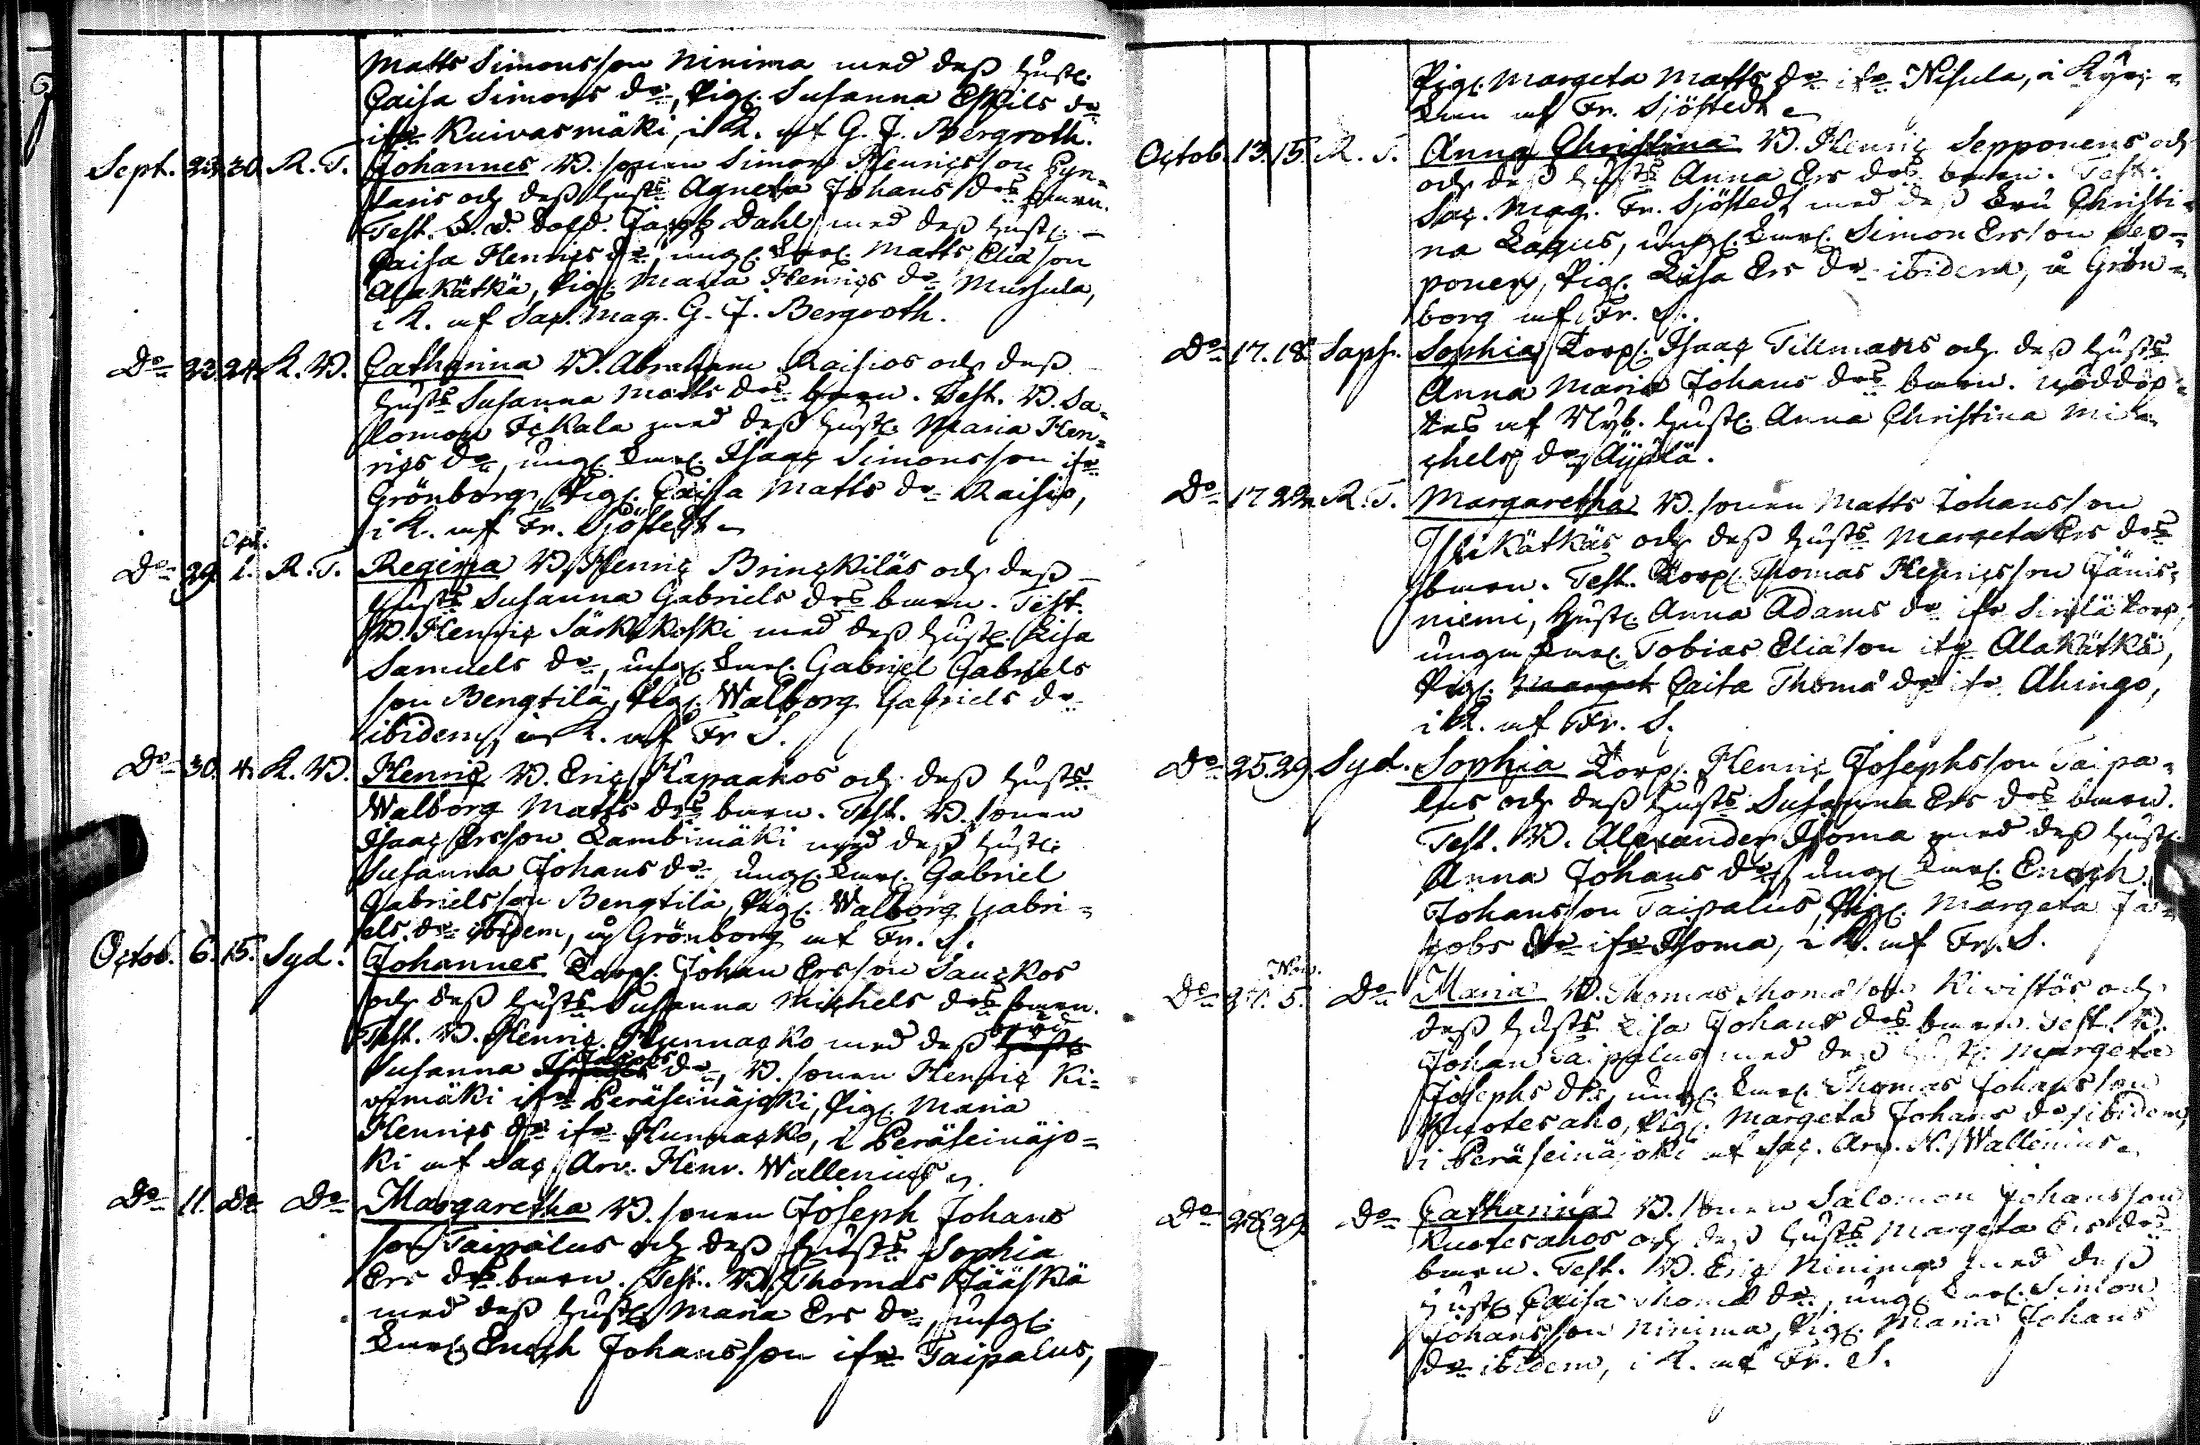 Matts Simonsson Ninima med deß hust.
Caisa Simons dr, Pig. Susanna Eskils dr
ifr Kuivasmäki, i K. af G. J. Bergroth.
Sept. 23. 30. R. T. Johannes B. sonen Simon Henricsson
och deß husts Agneta Johans drs barn.
Test. Jacob Dahl med deß hust.
Caisa Henrics dr, ung. Matts Eliæson
Alakätkä, Pig. Maria Henrics dr Mursula,
i K. af Sac. Mag. G. J. Bergroth.
Do 22. 24. K. B. Catharina B. Abraham Raisios och deß
husts Susanna Matts drs barn. Test. B. Sa-
lomon Ickala med deß hust. Maria Hen-
rics dr, ung. Isaac Simonsson ifr
Grönborg, Pig. Caisa Matts dr Raisio,
i K. af Fr. Sjöstedt
Oct.
Do 29. 1. R. T. Regina B. Henric Brinckiläs och deß
husts Susanna Gabriels drs barn. Test.
B. Henric Särkikoski med deß hust. Lisa
Samuels dr, ung. Gabriel Gabriels
son Bengtilä, Pig. Walborg Gabriels dr
ibidem, i K. af Fr S.
Do 30. 4. K. B. Henric B. Eric Hapaakos och deß husts
Walborg Matts drs barn. Test. B. sonen
Isaac Ersson Lambimäki med deß hust.
Susanna Johans dr, ung. Gabriel
Gabrielsson Bengtilä, Pig. Walborg Gabri-
els dr ibidem, på Grönborg af Fr. S.
Octob. 6. 15. Syd. Johannes Torp. Johan Ersson Sauckos
och deß husts Susanna Michels drs barn.
Test. B. Henric Hunnacko med deß
Susanna Jacobs dr, B. sonen Henric Ki-
vimäki ifr Peräseinäjocki, Pig. Maria
Henrics dr ifr Hunnacko, i Peräseinäjo-
ki af Sac. Arv. Henr. Wallenius.
Do 11. Do Do Margaretha B. sonen Joseph Johans
son Taipalus och deß husts Sophia
Ers drs barn. Test. B. Thomas Jääskä
med deß hust. Maria Ers dr, ung.
Enoch Johansson ifr Taipalus,
Pig. Margeta Matts dr ifr Nisula, i Kyr-
kan af Fr. Sjöstedt
Octob. 13. 15. R. T. Anna Christina B. Henric Sepponens och
och deß husts Anna Ers drs barn. Test.
Sac. Mag. Fr. Sjöstedt med deß Fru Christi-
na Lagus, ung. Simon Ersson Sep-
ponen, Pig. Lisa Ers dr ibidem, å Grön-
borg af Fr. S.
Do 17. 18. Saph. Sophia Torp. Isaac Tillmans och deß husts
Anna Maria Johans drs barn. nöddöp-
tes af Nyb. hust. Anna Christina Mi-
chels dr Äÿälä.
Do 17 22. R. T. Margaretha B. sonen Matts Johansson
Ylikätkäs och deß husts Margeta Ers drs
barn. Test. Torp. Thomas Henricsson Jänis-
niemi, hust. Anna Adams dr ifr Sirilä torp,
unga Tobias Eliæson ifr Alakätkä,
Pig. Caisa Thomæ dr ifr Ahingo,
i K. af Fr. S.
Do 25. 29. Syd. Sophia Torp. Henric Josephsson Taipa-
lus och deß husts Susanna Ers drs barn.
Test. B. Alexander Ihoma med deß hust.
Anna Johans dr, ung. Enoch
Johansson Taipalus, Pig. Margeta Ja-
cobs dr ifr Ihoma, i K. af Fr. S.
Nov.
Do 27. 5. Do Maria B. Thomas Thomæson Kivistös och
deß husts Lisa Johans drs barn. Test. B.
Johan Taipalus med deß hust. Margeta
Josephs dr, ung. Thomas Johansson
Kuotesaho, Pig. Margeta Johans dr ibidem,
i Peräseinäjoki af Sac. Arv. H. Wallenius.
Do 28. 29. Do Catharina B. sonen Salomon Johansson
Kuotesahos och deß husts Margeta Ers drs
barn. Test. B. Eric Ninima med deß
hust. Caisa Thomæ dr, ung. Simon
Johansson Ninima, Pig. Maria Johans
dr ibidem, i K. af Fr. S.